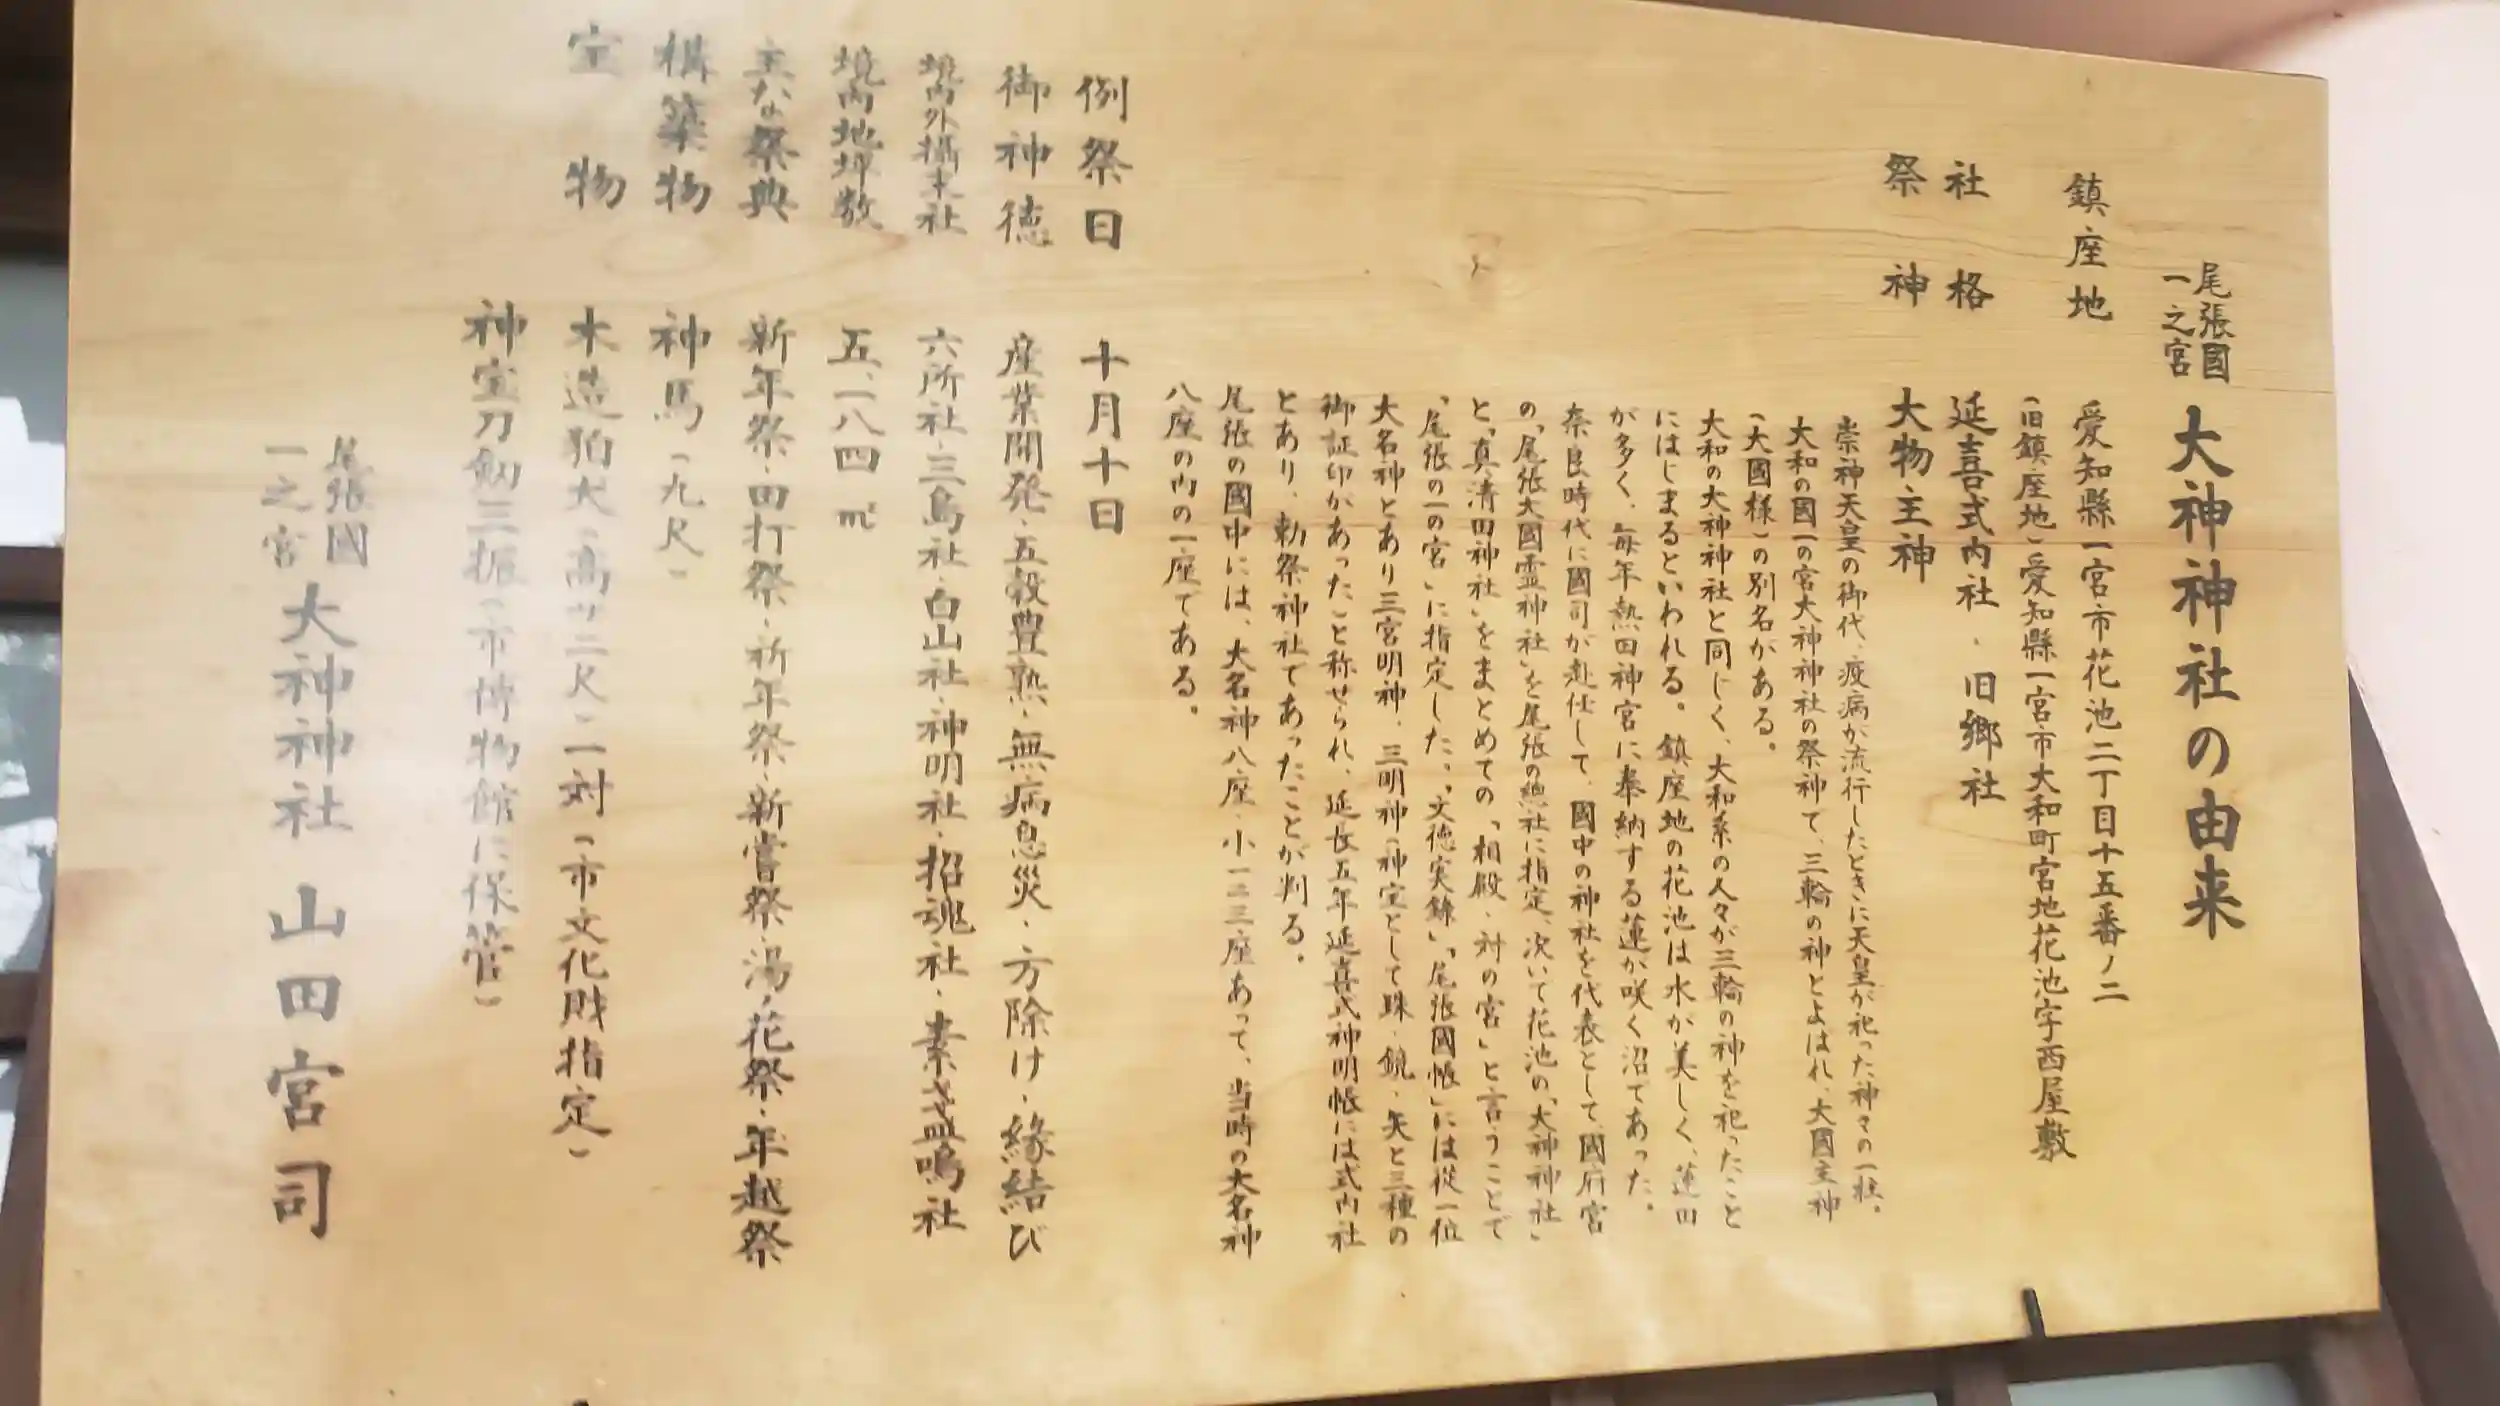 尾張國一之宮 大神神社の由来
鎮座地 愛知縣一宮市花池二丁目十五番ノ二
(旧鎮座地)愛知縣一宮市大和町宮地花池字西屋敷
社格 延喜式内社、旧郷社
祭神 大物主神
崇神天皇の御代、疫病が流行したときに天皇が祀った神々の一柱。
大和の國一の宮大神神社の祭神で、三輪の神とよばれ、大國主神
(大國様)の別名がある。
大和の大神神社と同じく、大和系の人々が三輪の神を祀ったこと
にはじまるといわれる。鎮座地の花池は水が美しく、蓮田
が多く、毎年熱田神宮に奉納する蓮が咲く沼であった。
奈良時代に國司が赴任して、國中の神社を代表として、國府宮
の「尾張大國霊神社」を尾張の總社に指定、次いで花池の「大神神社」
と「真清田神社」をまとめての「相殿・対の宮」と言うことで
「尾張の一の宮」に指定した。「文徳実録」「尾張國帳」には従一位
大名神とあり三宮明神、三明神(神宝として珠・鏡・矢と三種の
御証印があった)と称せられ、延長五年延喜式神明帳には式内社
とあり、勅祭神社であったことが判る。
尾張の國中には、大名神八座・小一二三座あって、当時の大名神
八座の内の一座である。
例祭日 十月十日
御神徳 産業開発・五穀豊熟・無病息災・方除け・縁結び
境内外摂末社 六所社・三島社・白山社・神明社・招魂社・素盞嗚社
境内地坪数 五、一八四㎡
主な祭典 新年祭・田打祭・祈年祭・新嘗祭・湯ノ花祭・年越祭
構築物 神馬(九尺)
宝物 木造狛犬(高サ二尺)一対(市文化財指定)
神宝刀剣三振(市博物館に保管)
尾張國一之宮 大神神社 山田宮司